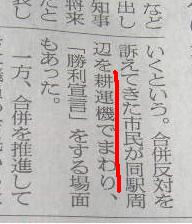 など
出し
知事
将来
いくという。合併反対を
訴えてきた市民が同駅周
辺を耕運機でまわり、
「勝利宣言」をする場面
もあった。
一方、合併を推進して